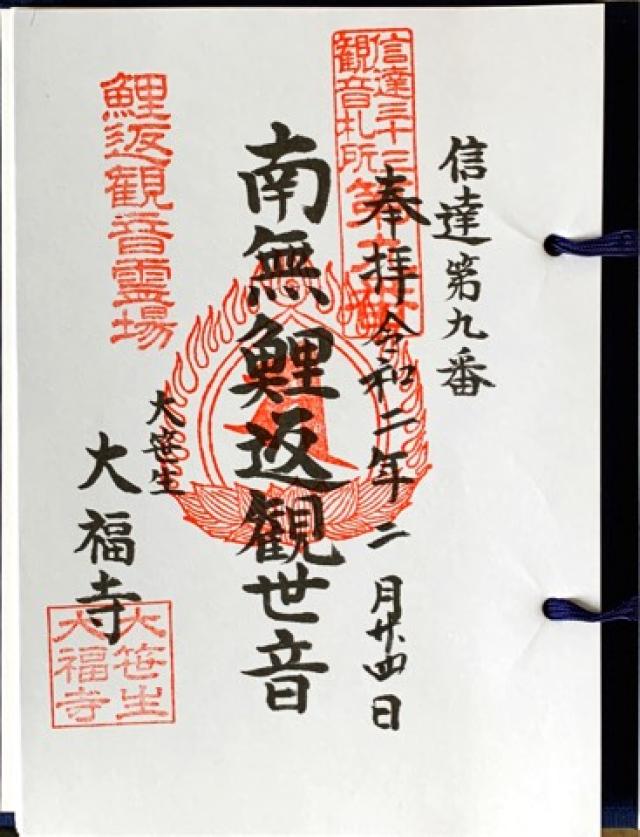 信達第九番
奉拝 令和二年二月廿四日
信達三十三
観音札所
第九番
南無鯉返観世音
鯉返観音霊場
大笹生
大福寺
大笹生
大福寺